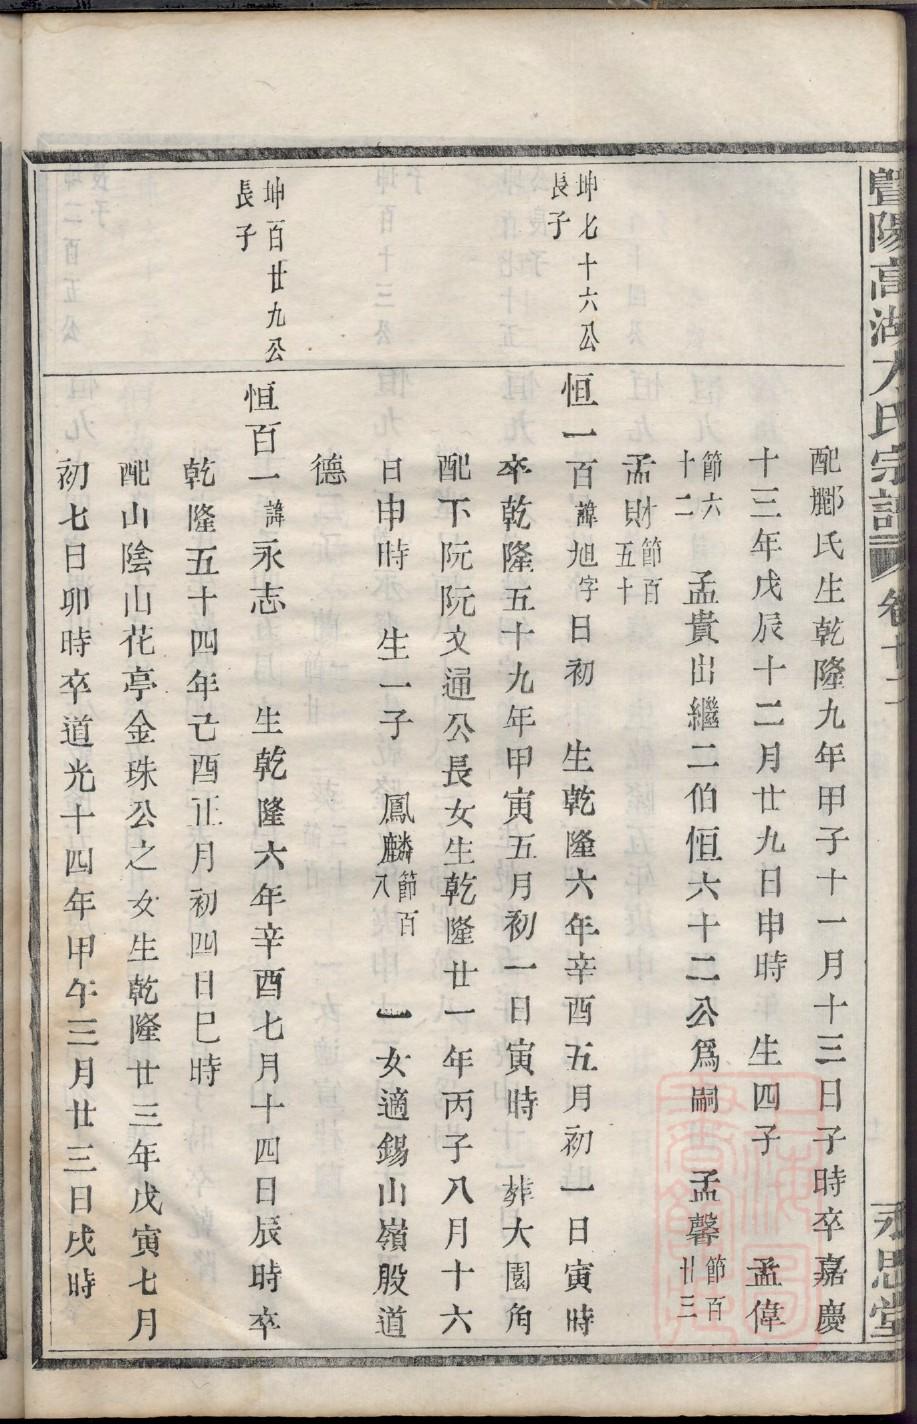 暨陽高湖方氏宗譜 卷廿二 永思堂
配酈氏生乾隆九年甲子十一月十三日子時卒嘉慶
十三年戊辰十二月廿九日申時 生四子 孟偉
節六十二 孟貴出繼二伯恒六十二公爲嗣 孟馨節百廿三
孟財節百五十
坤七十六公長子
恒一百諱旭字日初 生乾隆六年辛酉五月初一日寅時
卒乾隆五十九年甲寅五月初一日寅時 葬大園角
配下阮阮文通公長女生乾隆廿一年丙子八月十六
日申時 生一子 鳳麟節百八 一女適錫山嶺殷道
德
坤百廿九公長子
恒百一諱永志 生乾隆六年辛酉七月十四日辰時卒
乾隆五十四年己酉正月初四日巳時
配山陰山花亭金珠公之女生乾隆廿三年戊寅七月
初七日卯時卒道光十四年甲午三月廿三日戌時